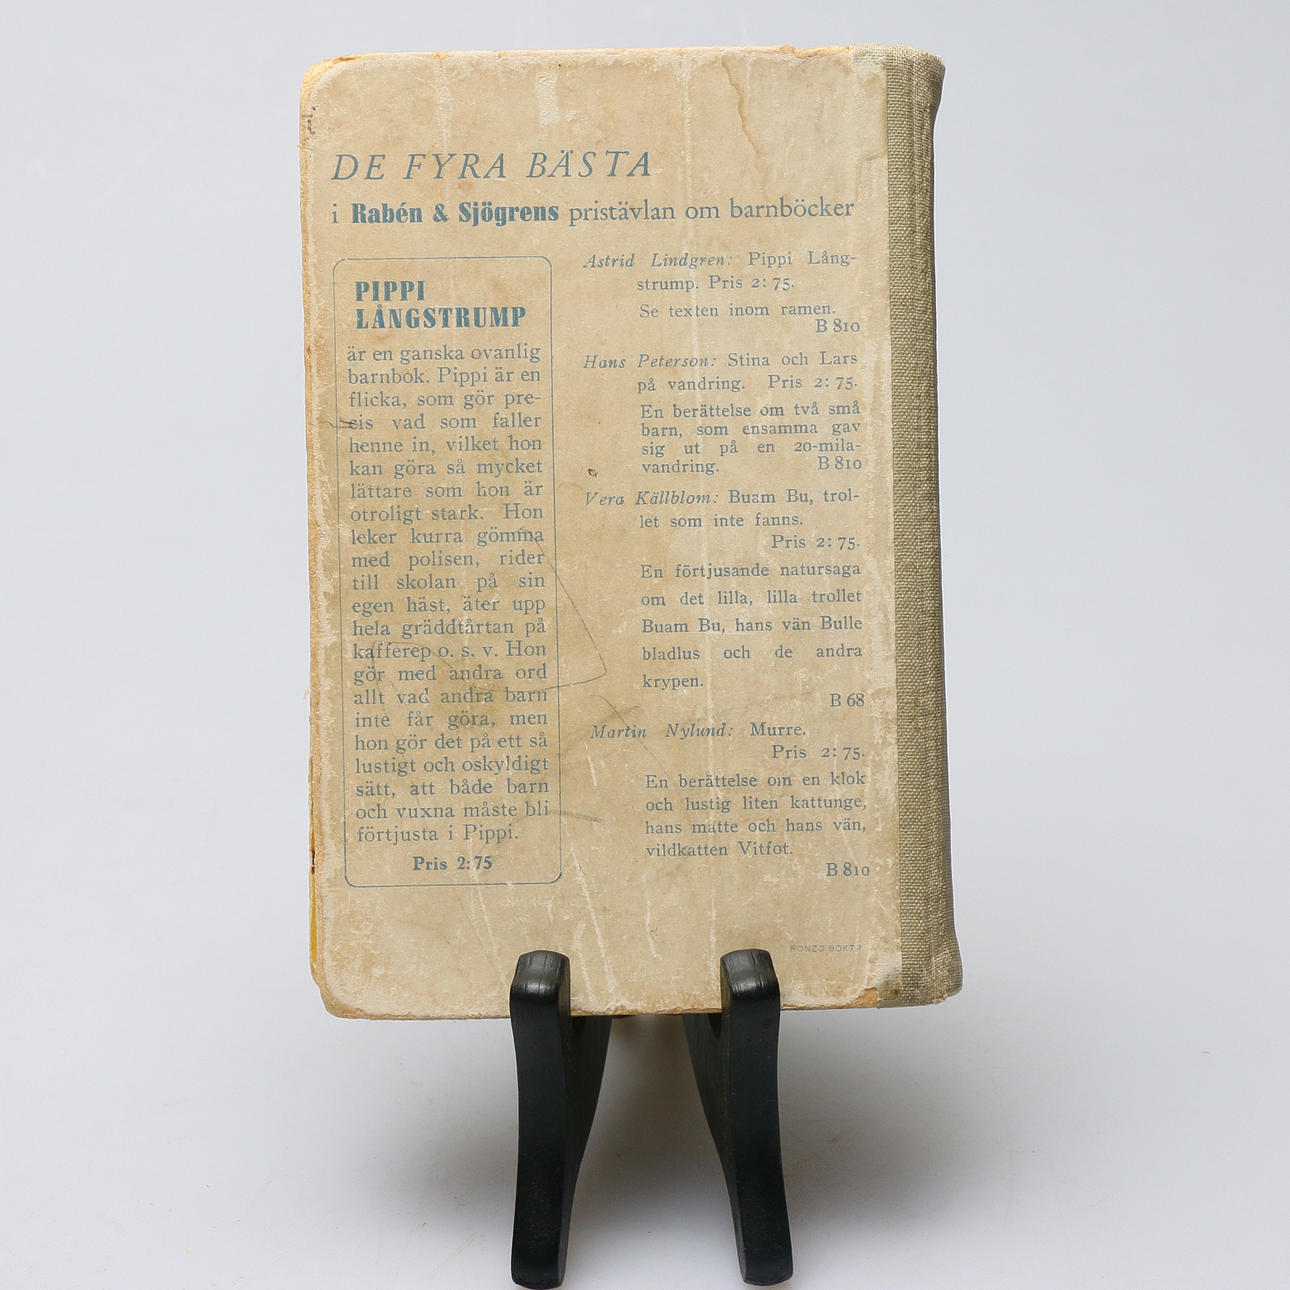 DE FYRA BÄSTA
i Rabén & Sjögrens pristävlan om barnböcker
PIPPI
LÅNGSTRUMP
är en ganska ovanlig
barnbok. Pippi är en
flicka, som gör pre-
cis vad som faller
henne in, vilket hon
kan göra så mycket
lättare som hon är
otroligt stark. Hon
leker kurra gömma
med polisen, rider
till skolan på sin
egen häst, äter upp
hela gräddtårtan på
kafferep o. s. v. Hon
gör med andra ord
allt vad andra barn
inte får göra, men
hon gör det på ett så
lustigt och oskyldigt
sätt, att både barn
och vuxna måste bli
förtjusta i Pippi.
Pris 2:75
Astrid Lindgren: Pippi Lång-
strump. Pris 2: 75.
Se texten inom ramen.
B 810
Hans Peterson: Stina och Lars
på vandring. Pris 2: 75.
En berättelse om två små
barn, som ensamma gav
sig ut på en 20-mila-
vandring. B 810
Vera Källblom: Buam Bu, trol-
let som inte fanns.
Pris 2: 75.
En förtjusande natursaga
om det lilla, lilla trollet
Buam Bu, hans vän Bulle
bladlus och de andra
krypen.
B 68
Martin Nylund: Murre.
Pris 2: 75.
En berättelse om en klok
och lustig liten kattunge,
hans matte och hans vän,
vildkatten Vitfot.
B 810
RONZO BOKTR.